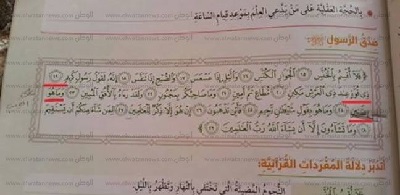 بالحجة العقلية على من يدعي العلم بموعد قيام الساعة
صدق الرسول ﷺ
﴿فَلَا أُقْسِمُ بِالْخُنَّسِ ١٥ الْجَوَارِ الْكُنَّسِ ١٦ وَاللَّيْلِ إِذَا عَسْعَسَ ١٧ وَالصُّبْحِ إِذَا تَنَفَّسَ ١٨ إِنَّهُ لَقَوْلُ رَسُولٍ كَرِيمٍ ١٩
ذِي قُوَّةٍ عِندَ ذِي الْعَرْشِ مَكِينٍ ٢٠ مُطَاعٍ ثَمَّ أَمِينٍ ٢١ وَمَا صَاحِبُكُم بِمَجْنُونٍ ٢٢ وَلَقَدْ رَآهُ بِالْأُفُقِ الْمُبِينِ ٢٣ وَمَا هُوَ
بِضَنِينٍ ٢٤ وَمَا هُوَ بِقَوْلِ شَيْطَانٍ رَّجِيمٍ ٢٥ فَأَيْنَ تَذْهَبُونَ ٢٦ إِنْ هُوَ إِلَّا ذِكْرٌ لِّلْعَالَمِينَ ٢٧ لِمَن شَاءَ مِنكُمْ أَن يَسْتَقِيمَ
٢٨ وَمَا تَشَاءُونَ إِلَّا أَن يَشَاءَ اللَّهُ رَبُّ الْعَالَمِينَ ٢٩﴾
أتدبر دلالة المفردات القرآنية:
النجوم المضيئة التي تختفي بالنهار وتظهر بالليل.